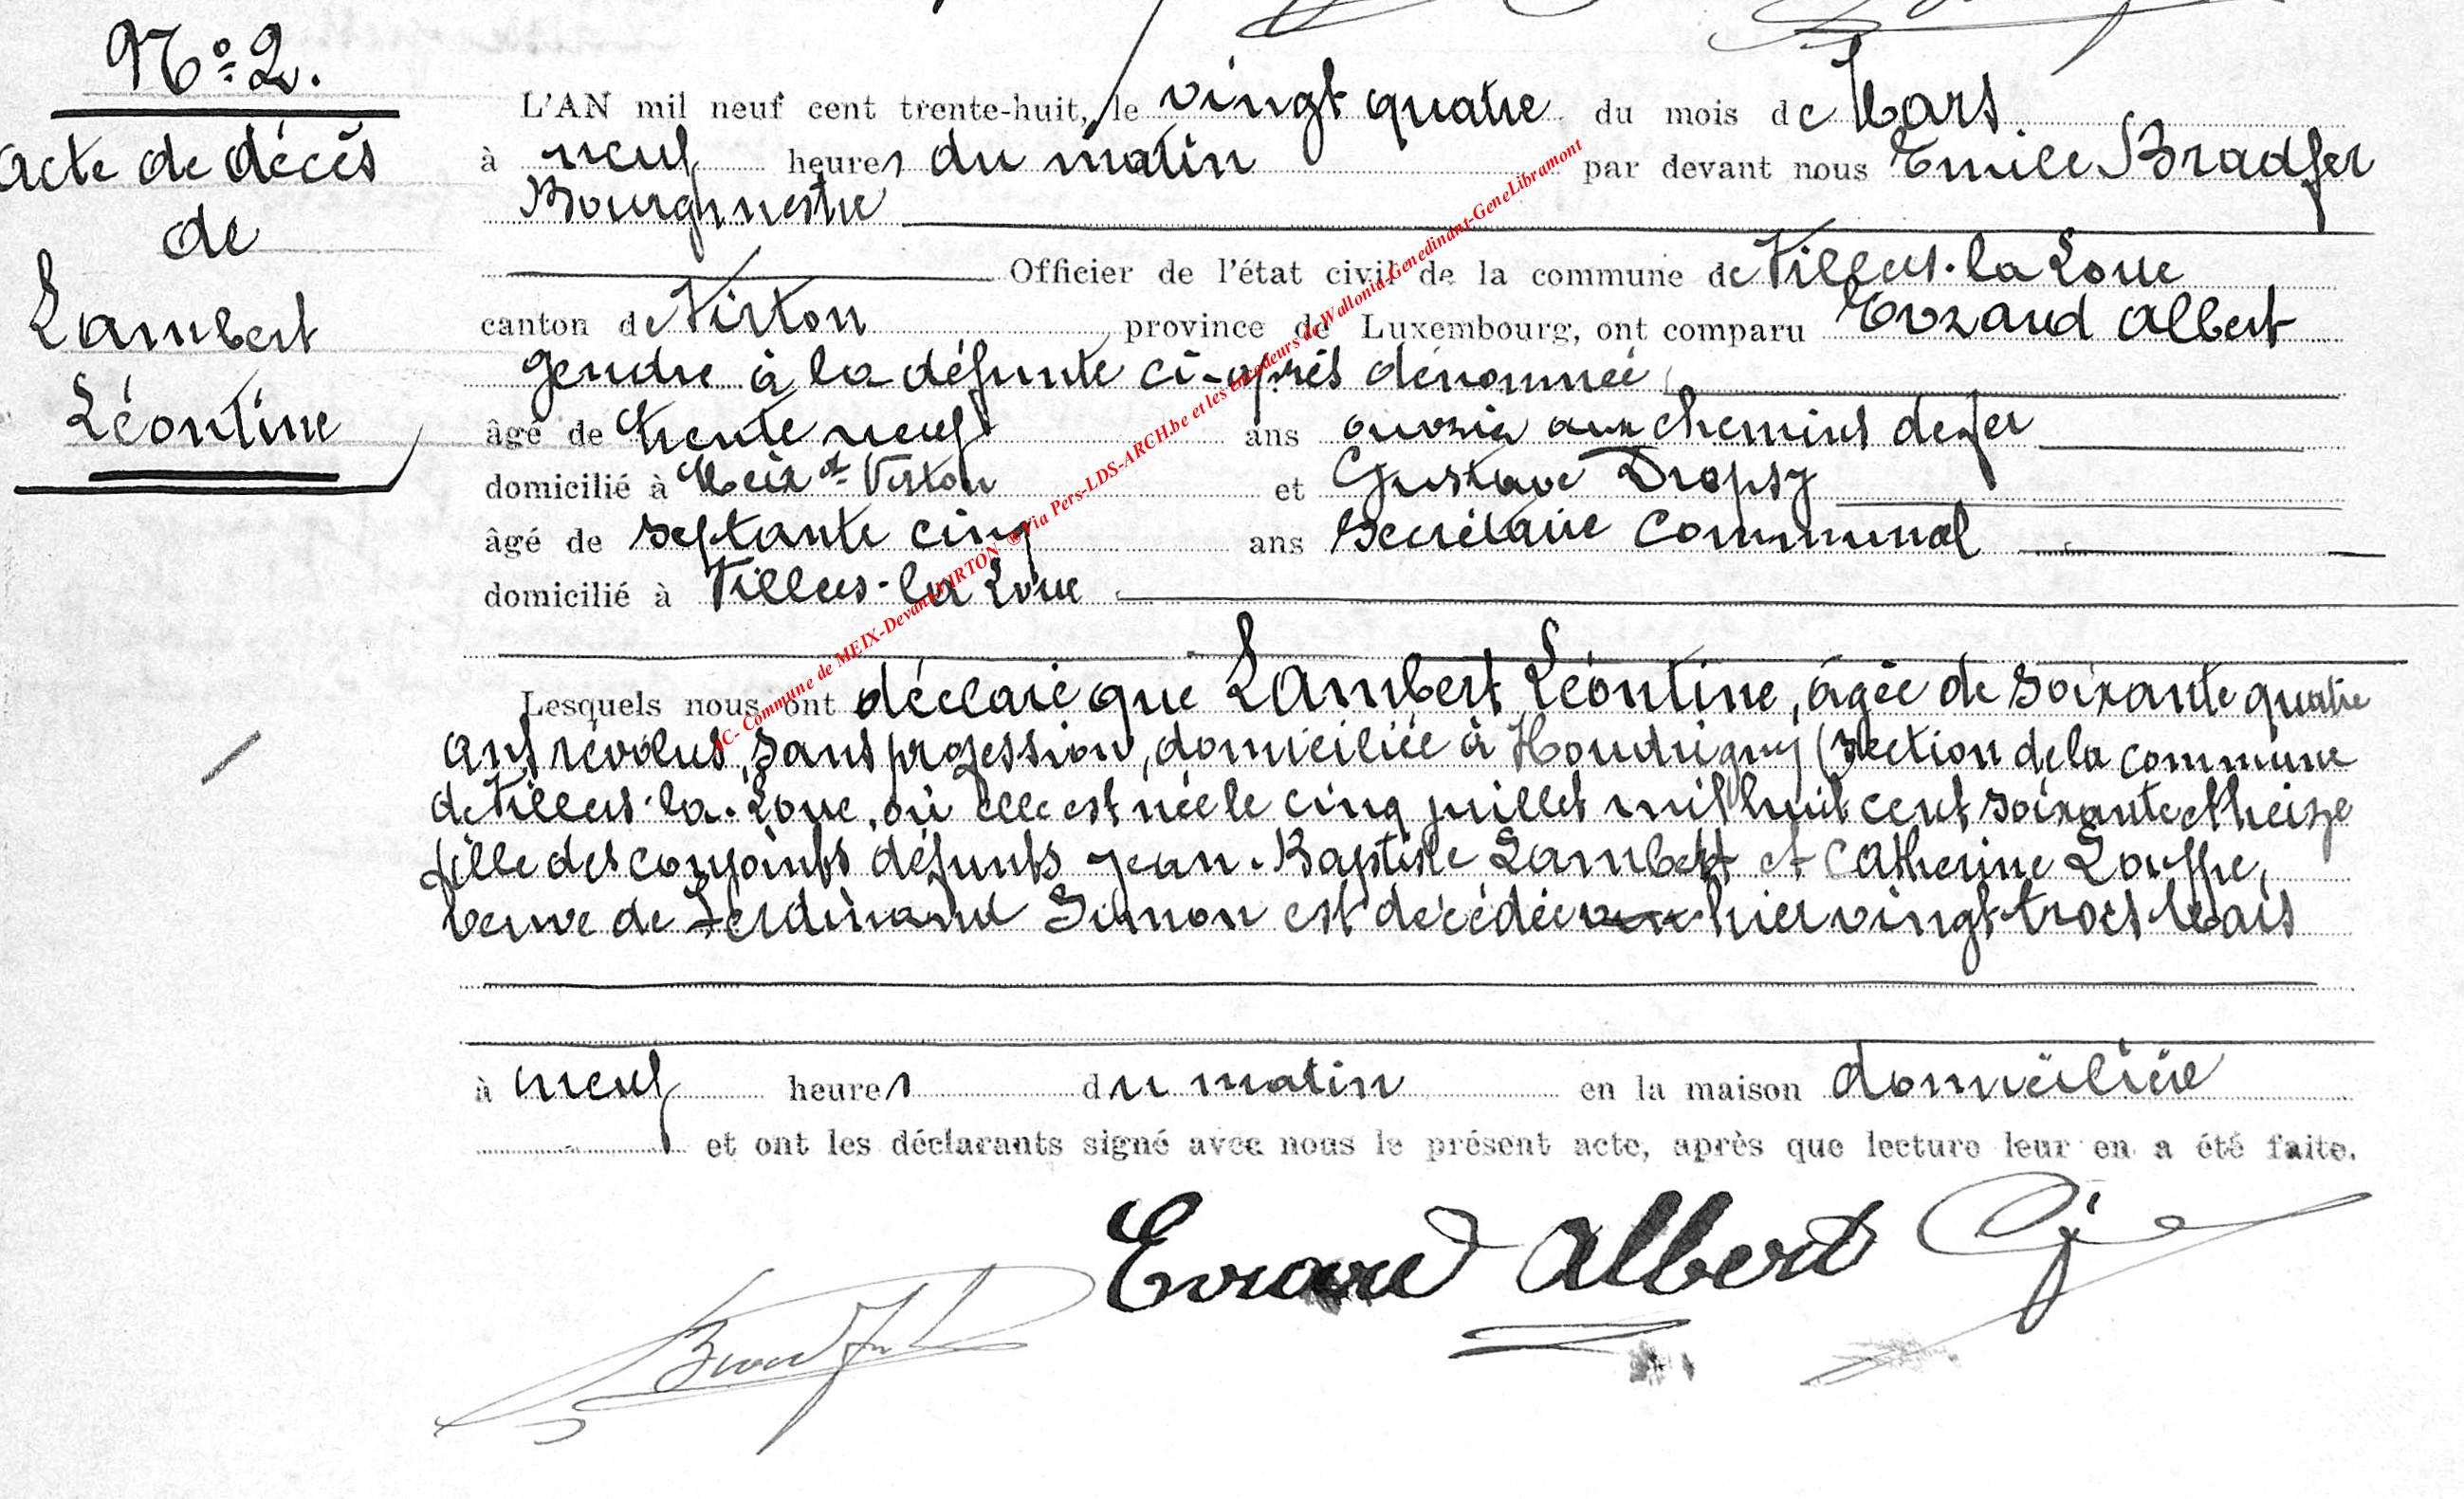 N° 2.
acte de décès
de
Lambert
Léontine
L'AN mil neuf cent trente-huit, le vingt quatre du mois de Mars
à neuf heures du matin par devant nous Emile Bradfer
Bourgmestre
Officier de l'état civil de la commune de Villers-la-Loue
canton de Virton province de Luxembourg, ont comparu Evrard Albert
gendre à la défunte ci-après dénommée
âgé de trente neuf ans ouvrier aux chemins de fer
domicilié à Meix dt Virton et Gustave Dropsy
âgé de septante cinq ans Secrétaire Communal
domicilié à Villers-la Loue
Lesquels nous ont déclaré que Lambert Léontine, âgée de soixante quatre
ans révolus, sans profession, domiciliée à Houdrigny (section de la commune
de Villers-la-Loue, où elle est née le cinq juillet mil huit cent soixante et treize
fille des conjoints défunts Jean-Baptiste Lambert et Catherine Louppe,
veuve de Ferdinand Simon est décédée hier vingt trois Mars
à neuf heures du matin en la maison domiciliée
et ont les déclarants signé avec nous le présent acte, après que lecture leur en a été faite.
Evrard Albert
Bradfer
AC- Commune de MEIX-Devant-VIRTON © Via Pers-LDS-ARCH.be et les encodeurs de Wallonia-Genedinant-GeneLibramont